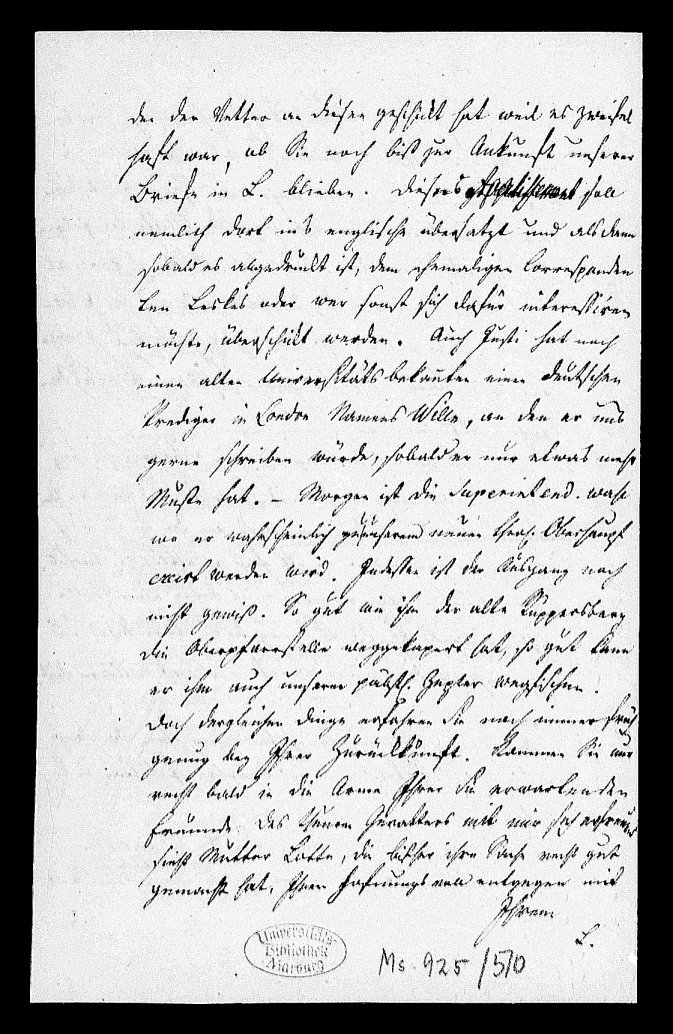 den der Vetter an diesen geschickt hat weil es zweifel
haft war, ob Sie noch biß zur Ankunft unserer
Briefe in L. blieben. Dieses Avertissement soll
nemlich dort in's englische übersetzt und alsdann
sobald es abgedruckt ist, dem ehemaligen Corresponden
ten Leskes oder wer sonst sich dafür interessiren
möchte, überschickt werden. Auch Justi hat noch
einen alten Universitätsbekannten einen deutschen
Prediger in London Namens Wille, an den er uns
gerne schreiben würde, sobald er nur etwas mehr
Muße hat. – Morgen ist die Superintend. wahl
wo er wahrscheinlich zu unserem neuen theol. Oberhaupt
creirt werden wird. Indessen ist der Ausgang noch
nicht gewiß. So gut wie ihm der alte Ruppersberg
die Oberpfarrstelle weggekapert hat, so gut kann
er ihm auch unseren päbstl. Zepter wegfischen.
Doch dergleichen Dinge erfahren Sie noch immer früh
genung bey Ihrer Zurückkunft. Kommen Sie nur
recht bald in die Arme Ihrer Sie erwartenden
Freunde. Des theuren Gevatters mit mir sich erfreuend
sieht Mutter Lotte, die bisher ihre Sache recht gut
gemacht hat, Ihnen hofnungsvoll entgegen mit
Ihrem
L.
Universitäts-
Bibliothek
Marburg
Ms. 925/510